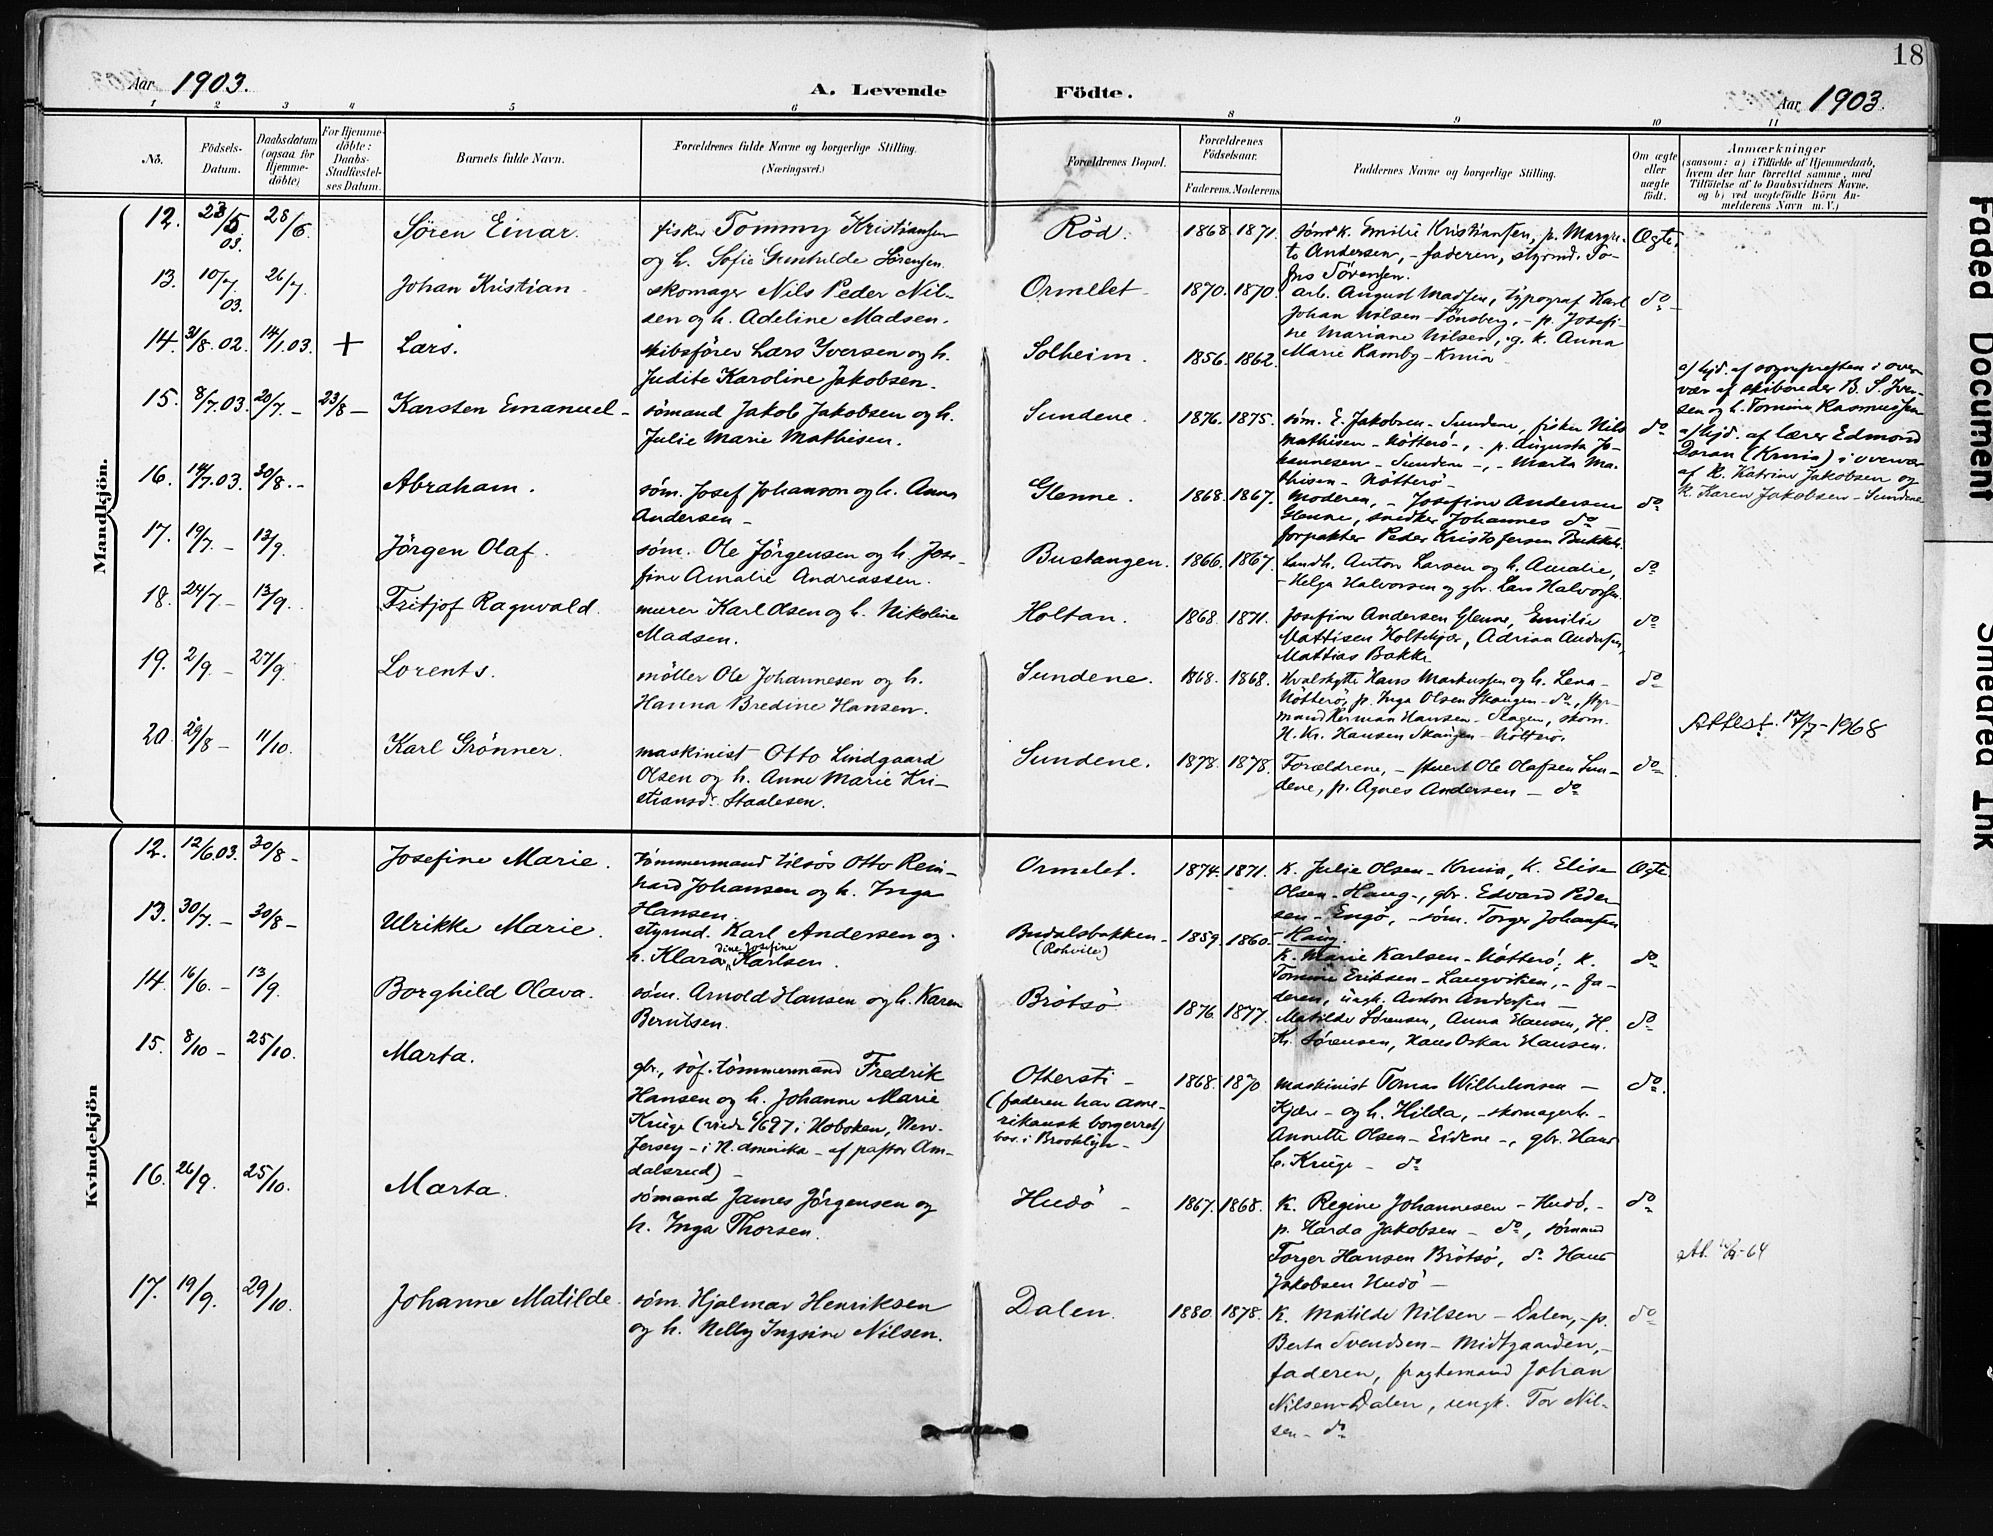 18
Aar 1903.
A. Levende Födte.
Aar 1903.
1 2 3 4 5 6 8 9 10 11
No.
Födsels-Datum.
Daabsdatum (ogsaa for Hjemme-döbte)
For Hjemme-döbte: Daabs-Stadfæstel-ses Datum.
Barnets fulde Navn.
Forældrenes fulde Navne og borgerlige Stilling.
(Næringsvei.)
Forældrenes Bopæl.
Forældrenes Födselsaar.
Faderens. Moderens
Faddernes Navne og borgerlige Stilling.
Om ægte eller uægte födt.
Anmærkninger
(saasom: a) i Tilfælde af Hjemmedaab,
hvem der har forrettet samme, med
Tilföielse af to Daabsvidners Navne.
og b) ved uægtefödte Börn An-
melderens Navn m. V.)
Mandkjön.
12. 23/5 03. 28/6. Søren Einar.
fisker Tommy Kristiansen
og h. Sofie Gunhilde Sørensen.
Röd. 1868 1871.
sömd. k. Emilie Kristiansen, p. Margre-
te Andersen, - faderen, styrmd. Jo-
hs Sørensen.
Ægte.
13. 10/7 03. 26/7. Johan Kristian
skomager Nils Peder Nil-
sen og h. Adeline Madsen.
Ormelet 1870. 1870.
arb. August Madsen, typograf Karl
Johan Nilsen - Tönsberg, - p. Josefi-
ne Mariane Nilsen, g. k. Anna
Marie Ramby - Krnia
do
14. 31/8. 02. 14/1.03. + Lars.
skibsförer Lars Iversen og h.
Judite Karoline Jakobsen.
Solheim. 1856. 1862.
a) hjd. af sognepresten i over-
vær af skibsreder B. S. Iver-
sen og h. Tomine Rasmussen
15. 8/7.03. 20/7. - 23/8 - Karsten Emanuel -
sömand Jakob Jakobsen og h.
Julie Marie Mathisen.
Sundene. 1876. 1875.
söm. E. Jakobsen - Sundene, fisker Nils
Mathisen - Nötterö -, - p. Augusta Jo-
hannesen - Sundene -, - Marta Ma-
thisen - Nötterö -
do
a) hjd. af lærer Edmond
Doran (Krnia) i overvær
af k. Katrine Jakobsen og
k. Karen Jakobsen - Sundene
16. 14/7.03. 30/8. - Abraham.
söm. Josef Johanson og h. Anna
Andersen -
Glenne. 1868. 1867.
Moderen, - Josefine Andersen
Glenne, snedker Johannes do -
forpakter Peder Kristofersen Bakken.
do
17. 19/7. - 13/9. Jörgen Olaf.
söm. Ole Jörgensen og h. Jose-
fine Amalie Andreassen.
Bustangen. 1866. 1867.
Landh. Anton Larsen og h. Amalie,
- Helga Halvorsen og gbr. Lars Halvorsen.
do
18. 24/7. - 13/9. Fritjof Ragnvald.
murer Karl Olsen og h. Nikoline
Madsen.
Holtan. 1868. 1871.
Josefine Andersen Glenne, Emilie
Mattisen Holtekjær, Adrian Andersen,
Mattias Bakke
do
19. 2/9. - 27/9. Lorents.
möller Ole Johannesen og h.
Hanna Bredine Hansen.
Sundene. 1868. 1868.
Hvalskytte Hans Markussen og h. Lena -
Nötterö, p. Inga Olsen Skangen - do, styr-
mand Herman Hansen - Skagen, skom.
H. Kr. Hansen Skangen - Nötterö.
do
Attest 17/7-1968
20. 29/8 - 11/10. Karl Grönner.
maskinist Otto Lindgaard
Olsen og h. Anne Marie Kri-
stiansd. Staalesen.
Sundene. 1878. 1878.
Forældrene, - stuert Ole Olafsen Sun-
dene, p. Agnes Andersen - do
do
Kvindekjön
12. 12/6.03. 30/8 - Josefine Marie.
tömmermand tilsös Otto Rein-
hard Johansen og h. Inga
Hansen.
Ormelet. 1874. 1871.
k. Julie Olsen - Krnia, k. Elise
Olsen - Haug -, gbr. Edvard Peder-
sen - Engö, - söm. Torger Johansen
- Haug.
Ægte
13. 30/7. - 30/8 - Ulrikke Marie.
styrmd. Karl Andersen og
h. Klara dine Josefine Karlsen.
Budalsbakken -
(Rohvile)
1859. 1860.
k. Marie Karlsen - Nötterö, k.
Tomine Eriksen - Langviken, - fa-
deren, ungk. Anton Andersen -
do
14. 16/6. - 13/9. Borghild Olava.
söm. Arnold Hansen og h. Karen
Berntsen.
Brötsö 1876. 1877.
Matilde Sørensen, Anna Hansen, H.
Kr. Sørensen, Hans Oskar Hansen.
do
15. 8/10 - 25/10. Marta.
gbr., söf. tömmermand Fredrik
Hansen og h. Johanne Marie
Krüge (viede 6/6 97 i Hoboken, New-
Jersey - i N. Amerika - af pastor Am-
dalsrud) -
Ottersti -
(faderen har ame-
rikansk borgerret)
bor. i Brooklyn -
1868. 1870
maskinist Tomas Wilhelmsen -
Kjære - og h. Hilda, - skomagerh. -
Annette Olsen - Eidene -, gbr. Hans
C. Krüge - do
do.
16. 26/9. 25/10. Marta.
sömand James Jörgensen og
h. Inga Thorsen.
Hudö - 1867. 1868.
k. Regine Johannesen - Hudö, -
p. Harda Jakobsen - do, sömand
Torger Hansen Brötsö, do Hans
Jakobsen Hudö -
do
17. 19/9. 29/10. Johanne Matilde.
söm. Hjalmar Henriksen
og h. Nelly Ingsine Nilsen.
Dalen. 1880. 1878.
k. Matilde Nilsen - Dalen, - p.
Berta Svendsen - Midtgaarden, -
faderen, fragtemand Johan
Nilsen - Dalen, ungk. Tor Nil-
sen - do
do
Faded Document
Smeared Ink